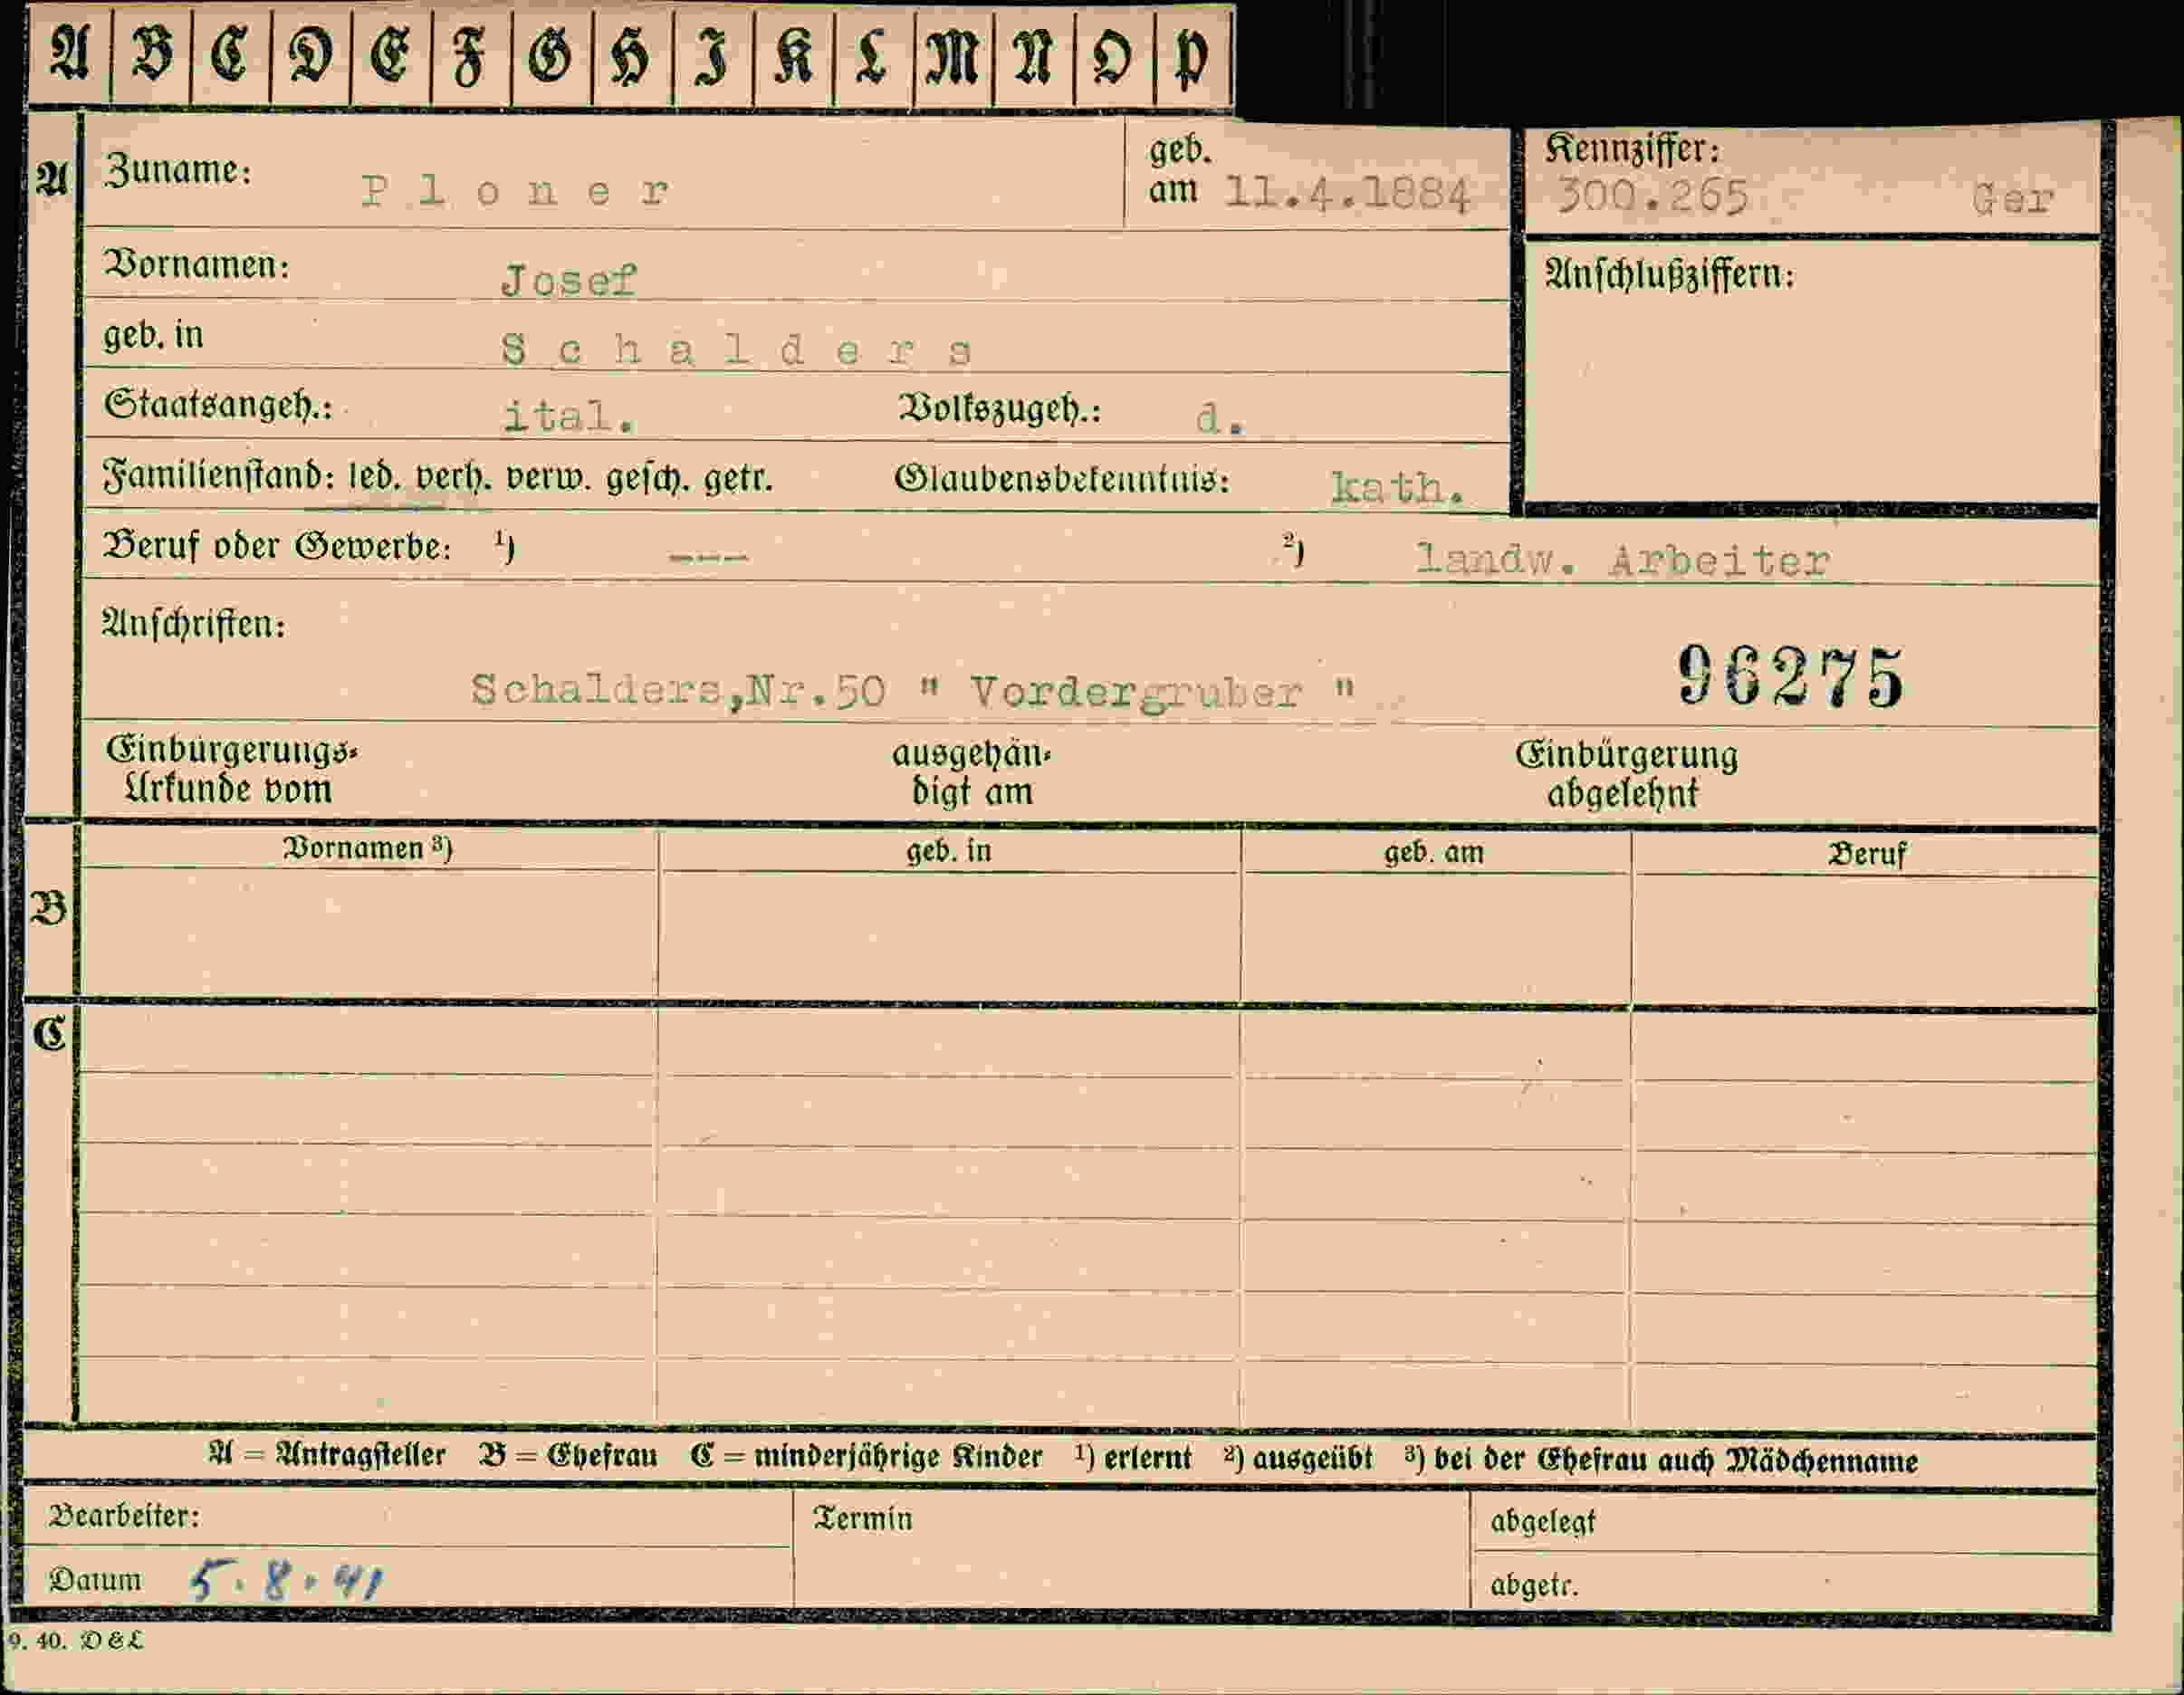 A B C D E F G H I K L M N O P
A Zuname: Ploner geb. am 11.4.1884 Kennziffer: 300.265 Ger
Vornamen: Josef Anschlußziffern:
geb. in Schalders
Staatsangeh.: ital. Volkszugeh.: d.
Familienstand: led. verh. verw. gesch. getr. Glaubensbekenntnis: kath.
Beruf oder Gewerbe: 1) --- 2) landw. Arbeiter
Anschriften:
Schalders,Nr.50 " Vordergruber " 96275
Einbürgerungs- ausgehän- Einbürgerung
Urkunde vom digt am abgelehnt
Vornamen 3) geb. in geb. am Beruf
B
C
A = Antragsteller B = Ehefrau C = minderjährige Kinder 1) erlernt 2) ausgeübt 3) bei der Ehefrau auch Mädchenname
Bearbeiter: Termin abgelegt
Datum 5.8.41 abgetr.
9. 40. D & L